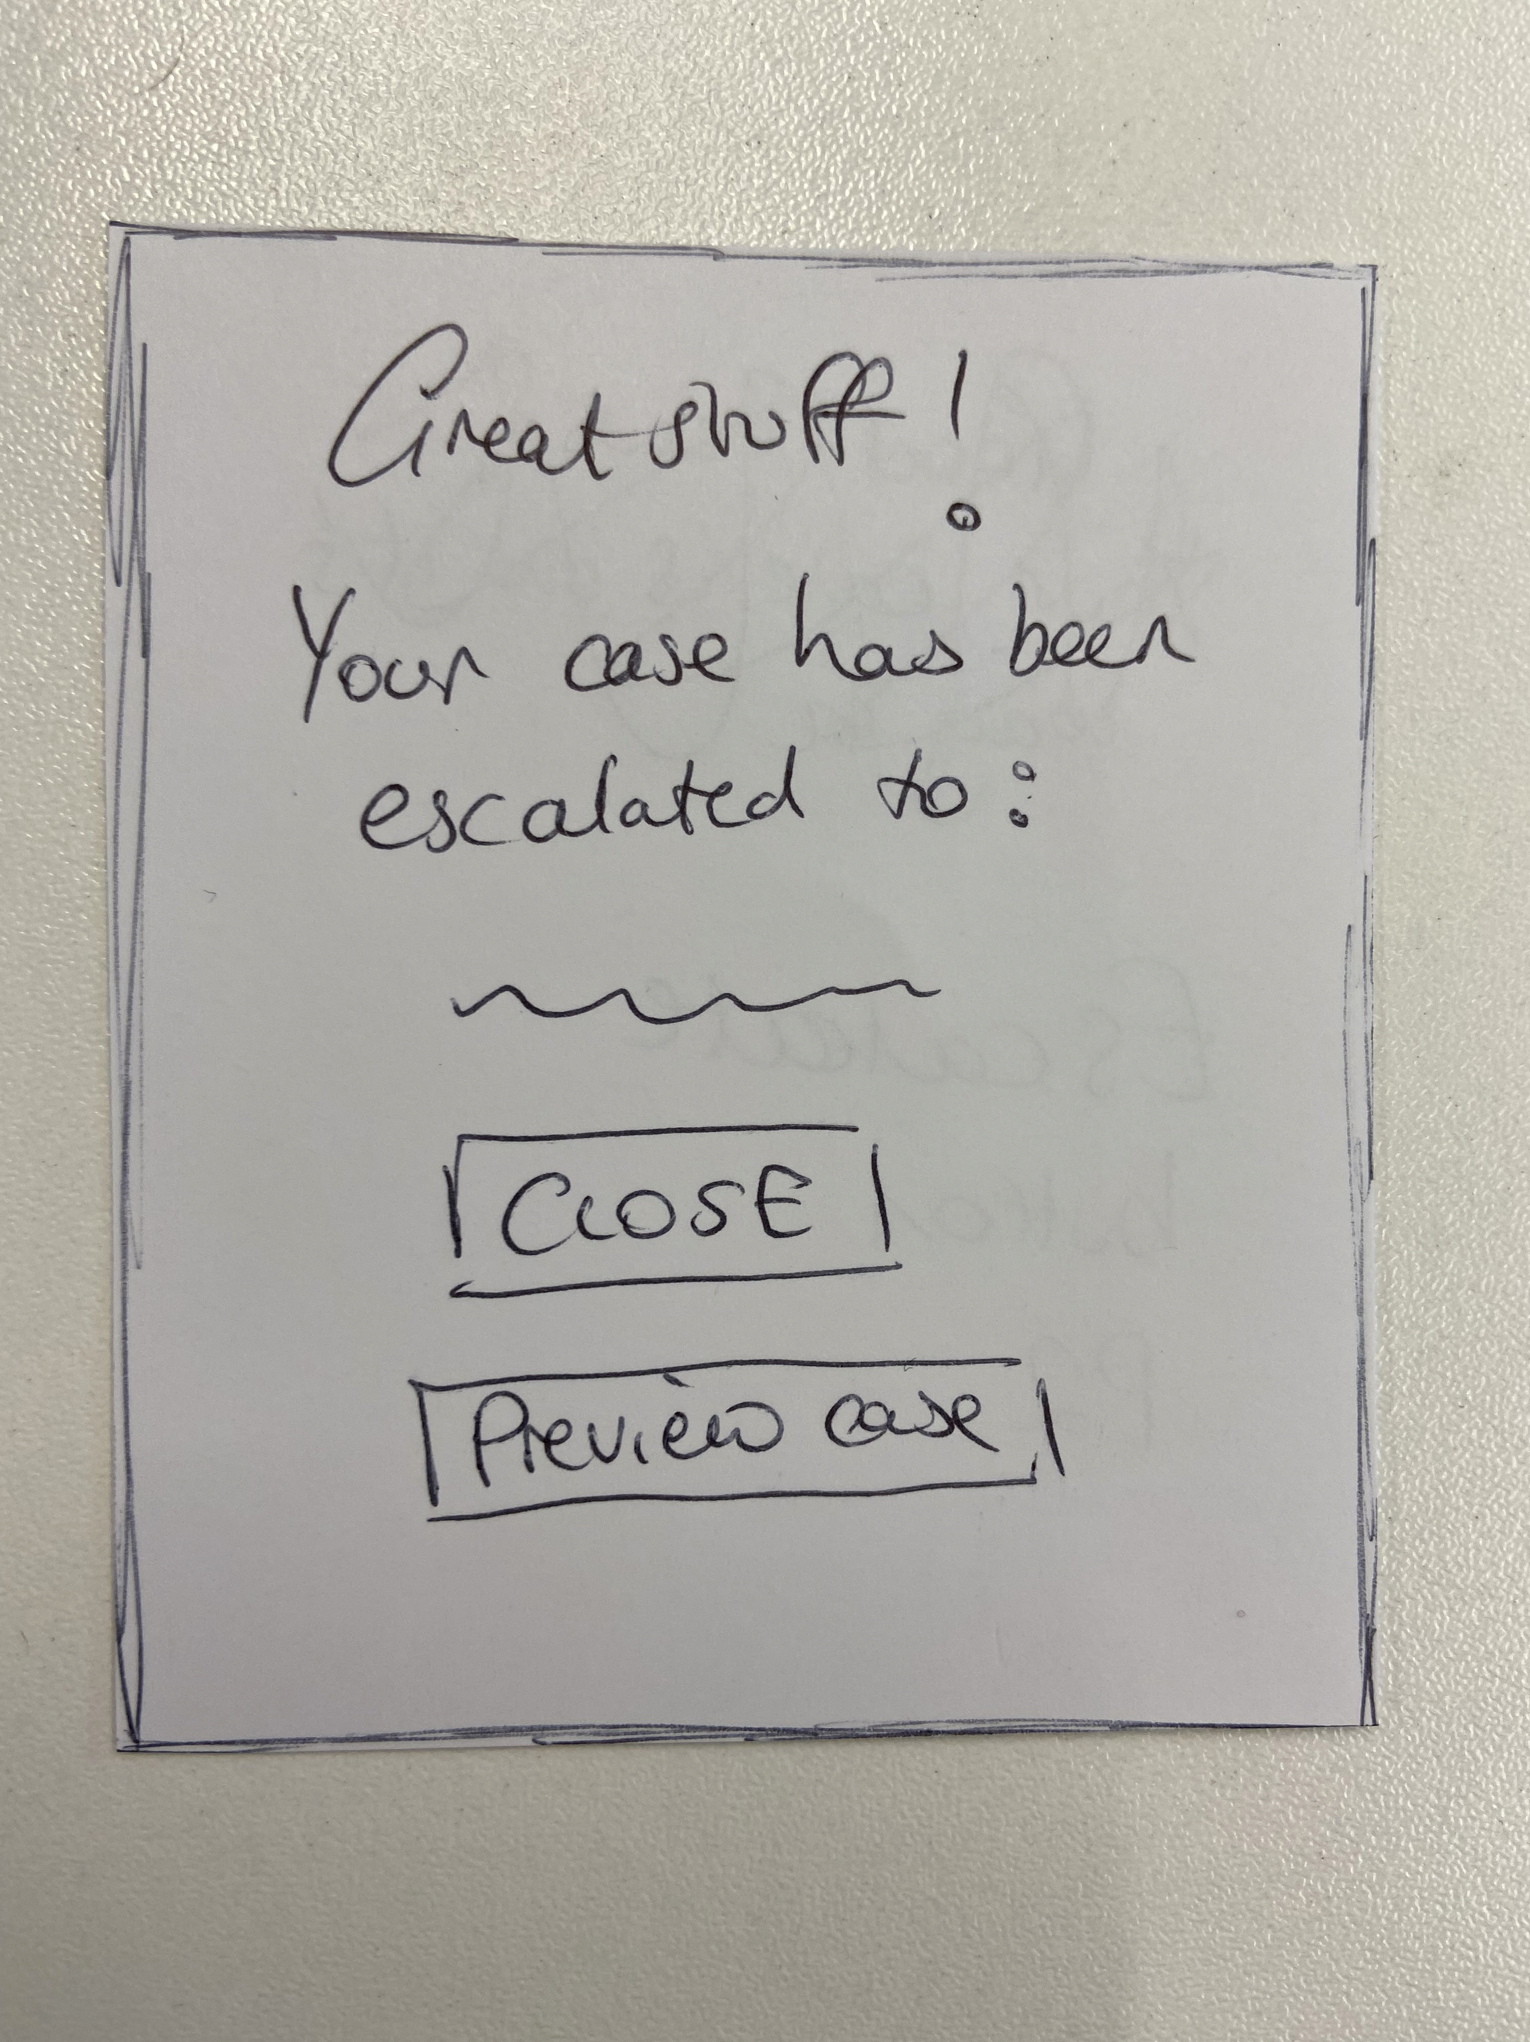 Great stuff!
Your case has been
escalated to:
CLOSE
Preview case